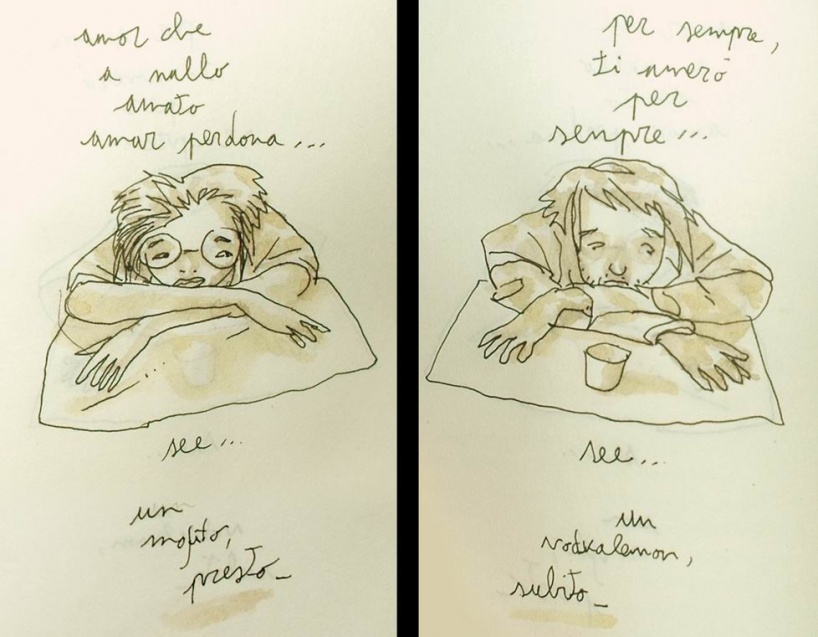 amor che
a nullo
amato
amar perdona...
see...
un
mojito,
presto_
per sempre,
ti amerò
per
sempre...
see...
un
vodkalemon,
subito_